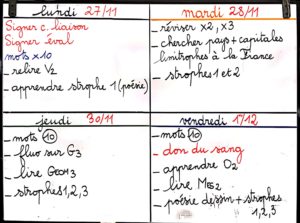 lundi 27/11
Signer c. liaison
Signer éval
mots x10
- relire V2
- apprendre strophe 1 (poésie)
mardi 28/11
- réviser x2, x3
- chercher pays + capitales
limitrophes à la France
- strophes 1 et 2
jeudi 30/11
- mots 10
- fluo sur G3
- lire GEOM3
- strophes 1, 2, 3
vendredi 1/12
- mots 10
- don du sang
- apprendre O2
- lire MES2
- poésie dessin + strophes
1, 2, 3